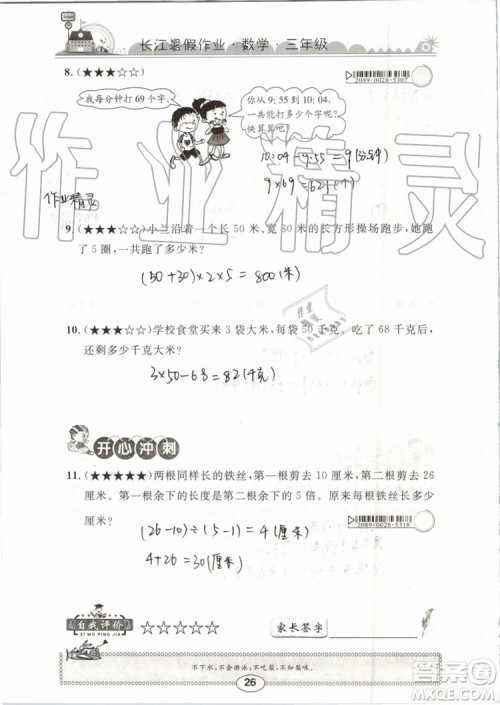 长江暑假作业·数学·三年级
8. (★★★☆☆)
2089-0028-5307
我每分钟打69个字。
从9:55到10:04，
一共能打多少个字呢?
快算算吧!
10:04-9:55=9(分钟)
9×69=621(个)
作业精灵
作业精灵
9. (★★★☆☆)小兰沿着一个长50米、宽30米的长方形操场跑步，她跑
了5圈，一共跑了多少米?
(50+30)×2×5=800(米)
10. (★★★☆☆)学校食堂买来3袋大米，每袋50千克。吃了68千克后，
还剩多少千克大米?
3×50-68=82(千克)
开心冲刺
11. (★★★★★)两根同样长的铁丝，第一根剪去10厘米，第二根剪去26
厘米。第一根余下的长度是第二根余下的5倍。原来每根铁丝长多少
厘米?
2089-0028-5318
(26-10)÷(5-1)=4(厘米)
4+26=30(厘米)
自我评价
ZI WO PING JIA
☆☆☆☆☆
家长签字
不下水,不会游泳;不吃盐,不知咸味。
26
答案圈
MXQE.COM